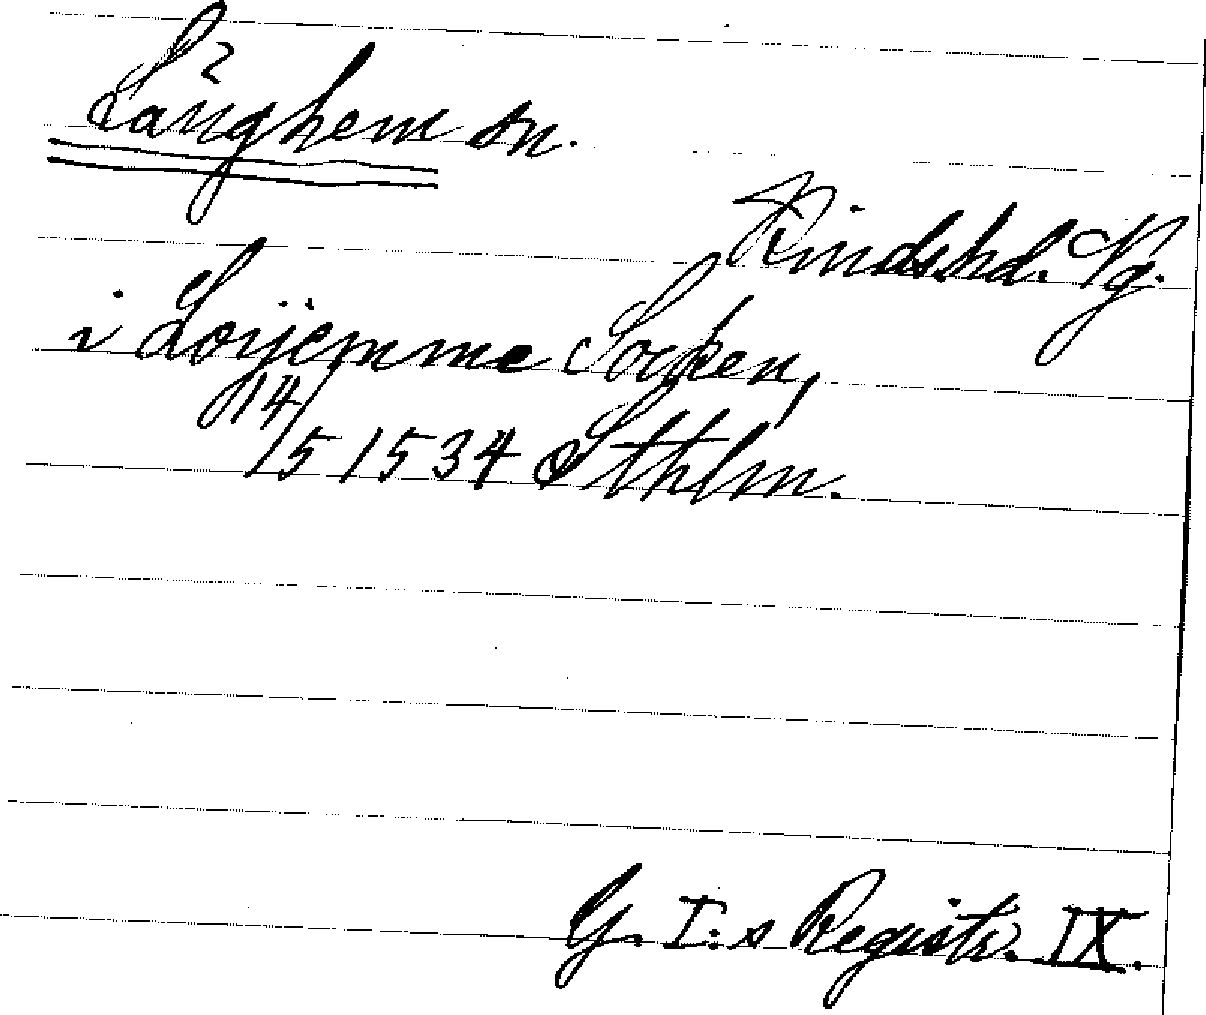 Långhem sn.
Kindshd. Vg.
i Loÿemme Socken,
14/5 1534 Sthlm.
G. I:s Registr. IX.